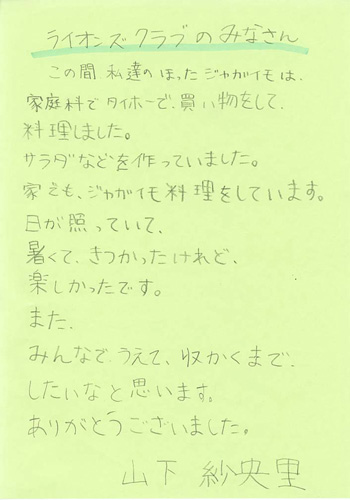 ライオンズクラブのみなさん
この間、私達のほったジャガイモは、
家庭科でタイホーで、買い物をして、
料理しました。
サラダなどを作っていました。
家でも、ジャガイモ料理をしています。
日が照っていて、
暑くて、きつかったけれど、
楽しかったです。
また、
みんなで、うえて、収かくまで、
したいなと思います。
ありがとうございました。
山下 紗央里